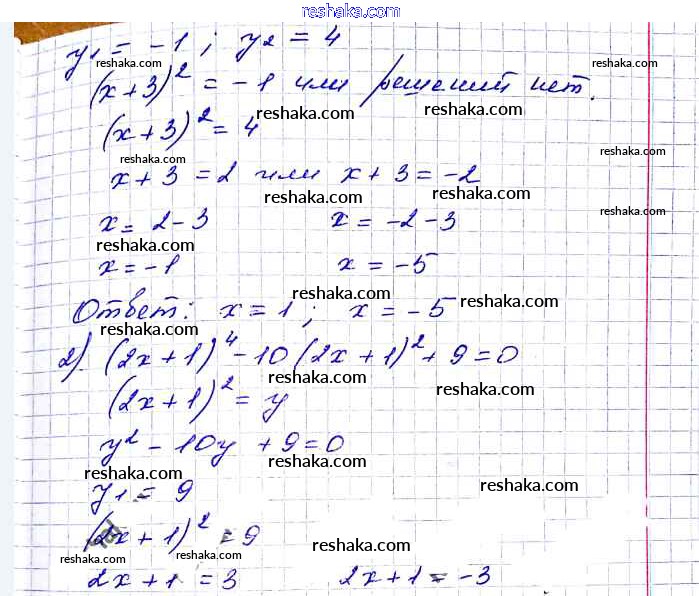 reshaka.com
y₁ = -1 ; y₂ = 4
reshaka.com reshaka.com
(x+3)² = -1 или решений нет.
reshaka.com reshaka.com
(x+3)² = 4
reshaka.com reshaka.com
x+3 = 2 или x+3 = -2
reshaka.com reshaka.com
x = 2-3 x = -2-3
reshaka.com reshaka.com
x = -1 x = -5
reshaka.com reshaka.com
Ответ: x = 1 ; x = -5
reshaka.com reshaka.com
2). (2x+1)⁴ - 10(2x+1)² + 9 = 0
reshaka.com reshaka.com
(2x+1)² = y
y² - 10y + 9 = 0
reshaka.com reshaka.com
y₁ = 9
reshaka.com
(2x+1)² = 9
reshaka.com
reshaka.com reshaka.com
2x+1 = 3 2x+1 = -3